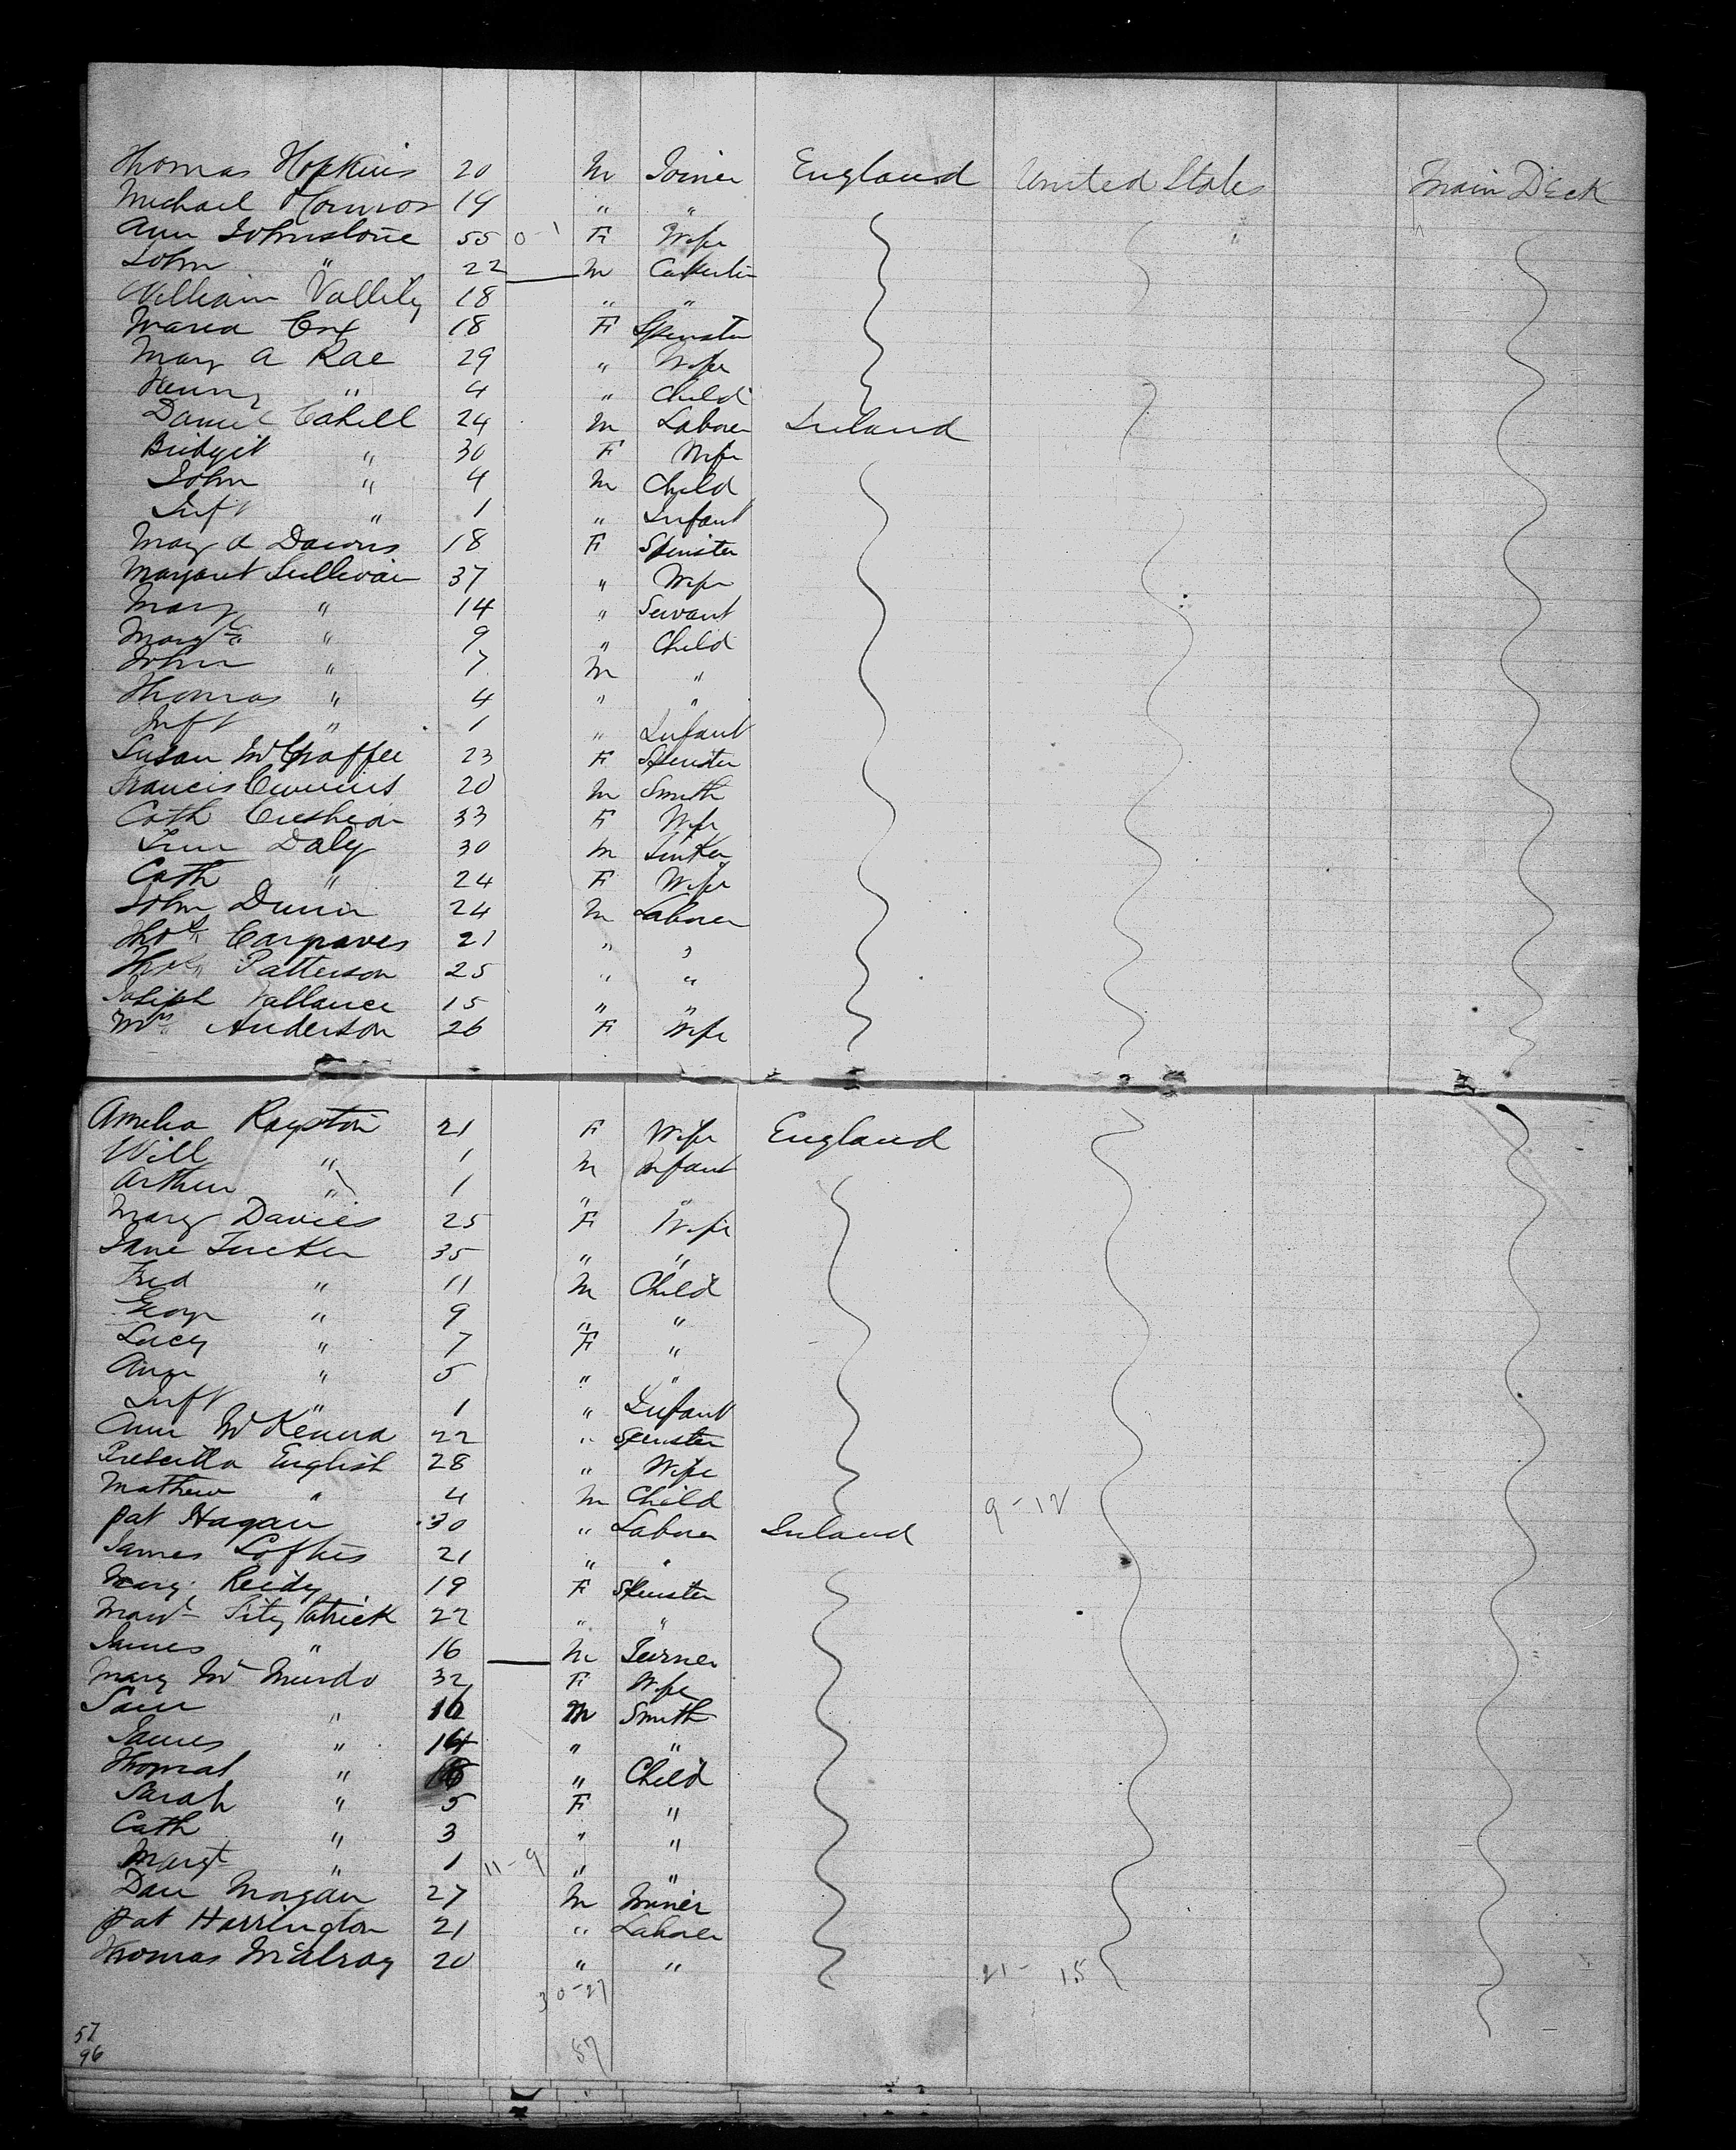 Thomas Hopkins 20 M Joiner England United States Main Deck
Michael 19 " "
Ann Johnstone 55 0-1 F Wife "
John " 22 M
William Vallily 18 " "
Maria Cox 18 F Spinster
Mary A Rae 29 " Wife
" 4 " Child
Daniel Cahill 24 M Laborer Ireland
Bridget " 30 F Wife
John " 4 M Child
Inft " 1 " Infant
Mary A 18 F Spinster
Margaret Sullivan 37 " Wife
Mary " 14 " Servant
Margt " 9 " Child
John " 7 M "
Thomas " 4 " "
Inft " 1 " Infant
Susan 23 F Spinster
Francis 20 M Smith
Cath 33 F Wife
Daly 30 M
Cath " 24 F Wife
John Dunn 24 M Laborer
Thos Cargraves 21 " "
Thos Patterson 25 " "
Joseph Vallance 15 " "
Mrs Anderson 26 F Wife
Amelia Royston 21 F Wife England
Will " 1 M Infant
Arthur " 1 " "
Mary Davies 25 F Wife
Jane Tucker 35 " "
Fred " 11 M Child
Geog " 9 " "
Lucy " 7 F "
Ann " 5 " "
Inft " 1 " Infant
Ann McKenna 22 " Spinster
English 28 " Wife
Mathew " 4 M Child 9-12
Pat Hagan 30 " Laborer Ireland
James Loftus 21 " "
Mary Reidy 19 F Spinster
Fitzpatrick 22 " "
James " 16 M Turner
Mary McMurdo 32 F Wife
Sam " 16 M Smith
James " 14 " "
Thomas " " Child
Sarah " 5 F "
Cath " 3 " "
Margt " 1 11-9 " "
Dan Morgan 27 M Miner
Pat Harrington 21 " Laborer
Thomas McElroy 20 " " 21-15
30-27
57
96 87